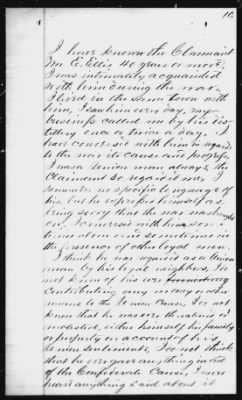 10.
I have known the Claimant
Wm E. Ellis 40 years or more.
I was intimately acquainted
with him during the war.
I lived in the same town with
him, I saw him every day, my
business called me by his dis-
tillery once or twice a day. I
have conversed with him in regard
to the war its cause and progress
I was a Union man always, the
Claimant so regarded me. I
remember no specific language of
his, but he expressed himself as
being sorry that the war was brought
on, I conversed with him some
times alone and sometimes in
the presence of other loyal men.
I think he was regarded as a Union
man by his loyal neighbors, I do
not know of his ever
contributing any money or other
means to the Union Cause, I do not
know that he was ever threatened or
molested, either himself his family
or property on account of his
Union sentiments, I do not think
that he ever gave anything in aid
of the Confederate Cause, I never
heard anything said about it